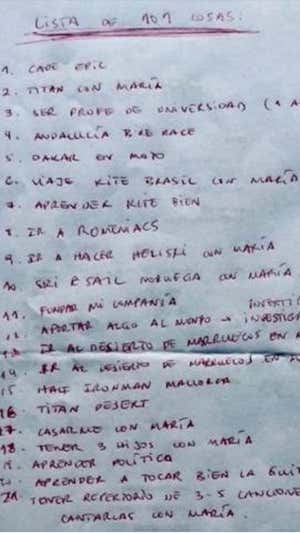 LISTA DE 101 COSAS:
1. CAPE EPIC
2. TITAN CON MARÍA
3. SER PROFE DE UNIVERSIDAD (1 A
4. ANDALUCÍA BIKE RACE
5. DAKAR EN MOTO
6. VIAJE KITE BRASIL CON MARÍA
7. APRENDER KITE BIEN
8. IR A ROMANIACS
9. IR A HACER HELISKI CON MARÍA
10. SKI & SAIL NORUEGA CON MARÍA
11. FUNDAR MI COMPAÑÍA
12. APORTAR ALGO AL MUNDO → INVESTIGA
13. IR AL DESIERTO DE MARRUECOS EN
14. IR AL DESIERTO DE MARRUECOS EN
15 HALF IRONMAN MALLORCA
16. TITAN DESERT
17. CASARME CON MARÍA
18. TENER 3 HIJOS CON MARÍA
19. APRENDER POLÍTICA
20 APRENDER A TOCAR BIEN LA GUIT
21. TENER REPERTORIO DE 3-5 CANCIONE
CANTARLAS CON MARÍA.